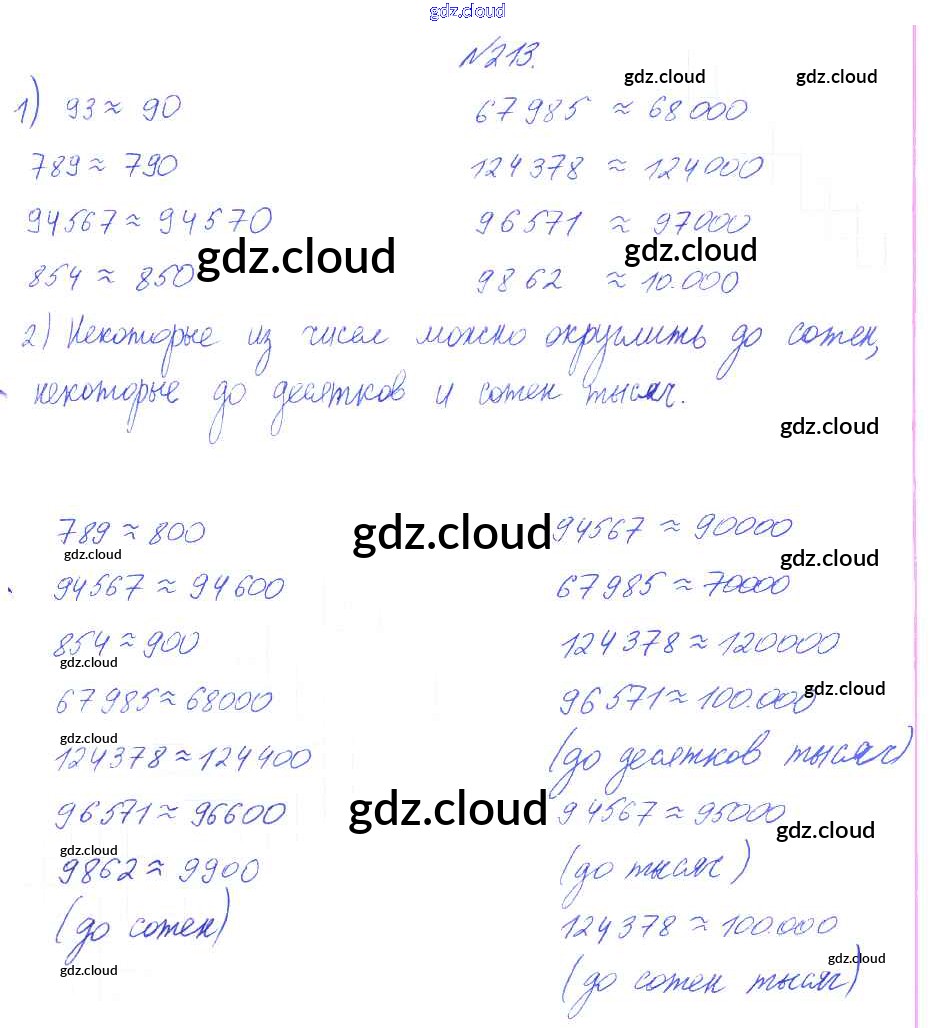 gdz.cloud
№213.
gdz.cloud gdz.cloud
1) 93 ≈ 90
67985 ≈ 68000
789 ≈ 790
124378 ≈ 124000
94567 ≈ 94570
96571 ≈ 97000
gdz.cloud
gdz.cloud
854 ≈ 850
9862 ≈ 10.000
2) Некоторые из чисел можно округлить до сотен,
некоторые до десятков и сотен тысяч.
gdz.cloud
789 ≈ 800
gdz.cloud
gdz.cloud
94567 ≈ 94600
854 ≈ 900
gdz.cloud
67985 ≈ 68000
gdz.cloud
124378 ≈ 124400
96571 ≈ 96600
gdz.cloud
gdz.cloud
9862 ≈ 9900
(до сотен)
gdz.cloud
94567 ≈ 90000
gdz.cloud
67985 ≈ 70000
124378 ≈ 120000
96571 ≈ 100.000
gdz.cloud
(до десятков тысяч)
94567 ≈ 95000
gdz.cloud
(до тысяч)
124378 ≈ 100.000
gdz.cloud
(до сотен тысяч)